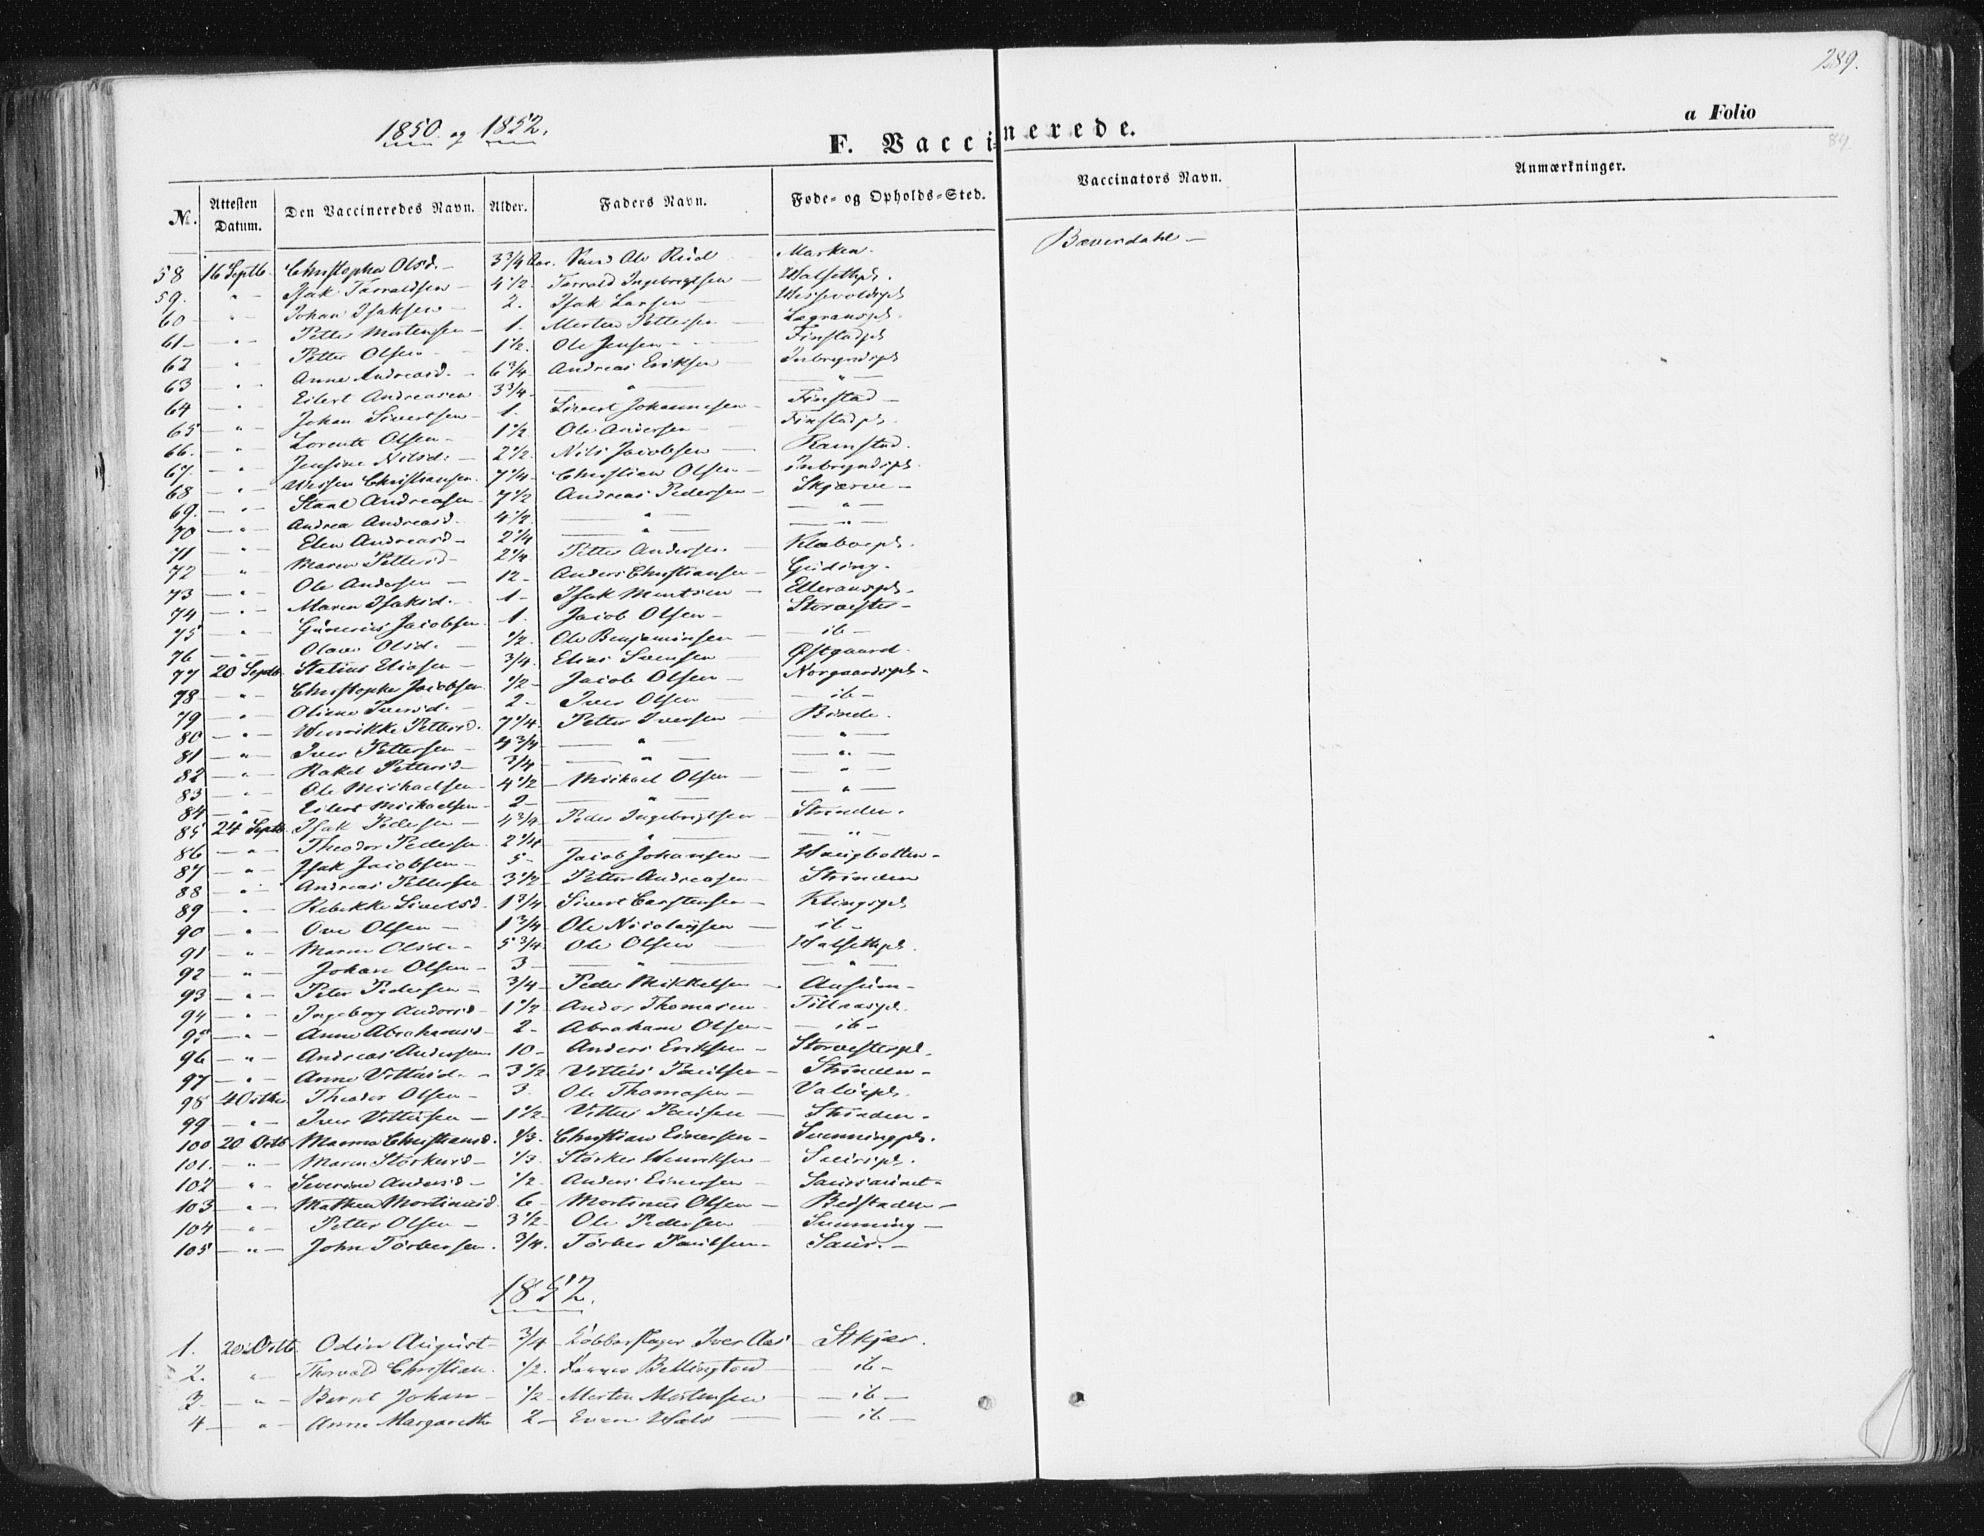 289.
1850. og 1852.
F. Vaccinerede.
a Folio
89.
No. Attesten Datum. Den Vaccineredes Navn. Alder. Faders Navn. Føde- og Opholds-Sted. Vaccinators Navn. Anmærkninger.
58 16 Septb. Christopha Olsd. — 3 3/4 Aar. Ole Marken. Bæverdahl —
59. — " — Isak Tarraldsen — 4 1/2. Tarrald Ingebrigtsen — Halsethpl.
60 — " — Johan Isaksen — 2. Isak Larsen —
61 — " — Petter Mortensen — 1. Morten Pettersen —
62 — " — Petter Olsen — 1 1/2. Ole Jensen — Finstadpl
63 — " — Anne Andreasd. — 6 3/4. Andreas Eriksen — Inbryndspl
64 — " — Eilert Andreasen 3 3/4. — " — — " —
65 — " — Johan Sivertsen — 1. Sivert Johannesen — Finstad —
66. — " — Lorents Olsen — 1 1/2 Ole Andersen — Finstadpl.
67 — " — Jensine Nilsd. — 2 1/2. Nils Jacobsen — Ramstad.
68 — " — Christiansen. 7 1/4. Christian Olsen — Inbryndspl.
69. — " — Staal Andreasen — 7 1/2 Andreas Pedersen — Skjærve —
70 — " — Andrea Andreasd. 4 1/2. — " — — " —
71 — " — Elen Andreasd — 2 1/4 — " — — " —
72 — " — Maren Pettersd — 2 1/4 Petter Andersen. Klæboepl.
73 — " — Ole Andersen — 12 — Anders Christiansen — Guding.
74 — " — Maren Isaksd. — 1 — Isak Mentsen — Elleranspl.
75 — " — Gunerius Jacobsen 1. Jacob Olsen — Storvester —
76 — " — Olava Olsd. — 1/2. Ole Benjaminsen — — ib —
77 20 Septb. Statius Eliasen — 3/4. Elias Svensen — Østgaard.
78 — " — Christopher Jacobsen 1/2 — Jacob Olsen — Norgaardspl —
79 — " — Oliane Iversd. — 2 — Iver Olsen — — ib —
80 — " — Henrikke Pettersd. 7 1/4. Petter Iversen — Binde.
81 — " — Iver Pettersen — 4 3/4 — " — — " —
82 — " — Rakel Pettersd — 3/4 — " — — " —
83 — " — Ole Michaelsen — 4 1/2 — Michael Olsen — — " —
84 — " — Eilert Michaelsen — 2 — — " — — " —
85 24 Septb. Isak Pedersen — 4 3/4 — Peder Ingebrigtsen — Strinden.
86 — " — Theodor Pedersen 2 1/4 — " — — " —
87 — " — Isak Jacobsen — 5 — Jacob Johansen — Haugbotten —
88 — " — Andreas Pettersen 3 1/2 — Petter Andreasen — Strinden
89 — " — Rebekke Sivertsd. 1 3/4. Sivert Carstensen — Klingspl
90 — " — Ove Olsen — 1 3/4 — Ole Nicolaysen — ib —
91 — " — Maren Olsd. — 5 3/4. Ole Olsen — Halsethpl.
92 — " — Johan Olsen — 3 — — " — — " —
93 — " — Peter Pedersen — 3/4 — Peder Mikkelsen — Ausum —
94 — " — Ingeborg Andorsd — 1 1/2 — Andor Thomasen — Tillaaspl.
95 — " — Anne Abrahamsd — 2 — Abraham Olsen — — ib —
96 — " — Andreas Andersen 10 — Anders Eriksen — Storvesterpl.
97 — " — Anne Vittusd. — 3 1/2 Vittus Paulsen — Strinden —
98 4 Octbr Theodor Olsen — 3. Ole Thomasen — Valøepl.
99 — " — Iver Vittusen — 1 1/2 — Vittus Paulsen — Strinden —
100 20 Octb Christiansd. 1/3. Christian Einersen — Sunningpl.
101. — " — Maren Størkersd — 1/3. Størker Henriksen —
102 — " — Severine Andersd — 1/2. Anders Einersen —
103 — " — Mathea Mortinusd. 6 — Mortinus Olsen — Redstaden —
104 — " — Petter Olsen — 3 1/2. Ole Pedersen — Sunning —
105 — " — John Torbersen. 3/4. Torber Paulsen — Saur. —
1852.
1. 20 Octb Odin August — 3/4 Kobberslager Iver Aas Stkjær.
2. " — Thorvald Christian. 1/2. Bellington — — ib —
3 — " — Bernt Johan — 1/2 — Morten Mortensen — — ib —
4 — " — Anne Margarethe 2 — Even — — ib —